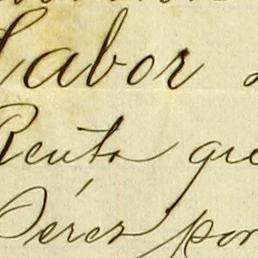 Labor
Renta que
Pérez por